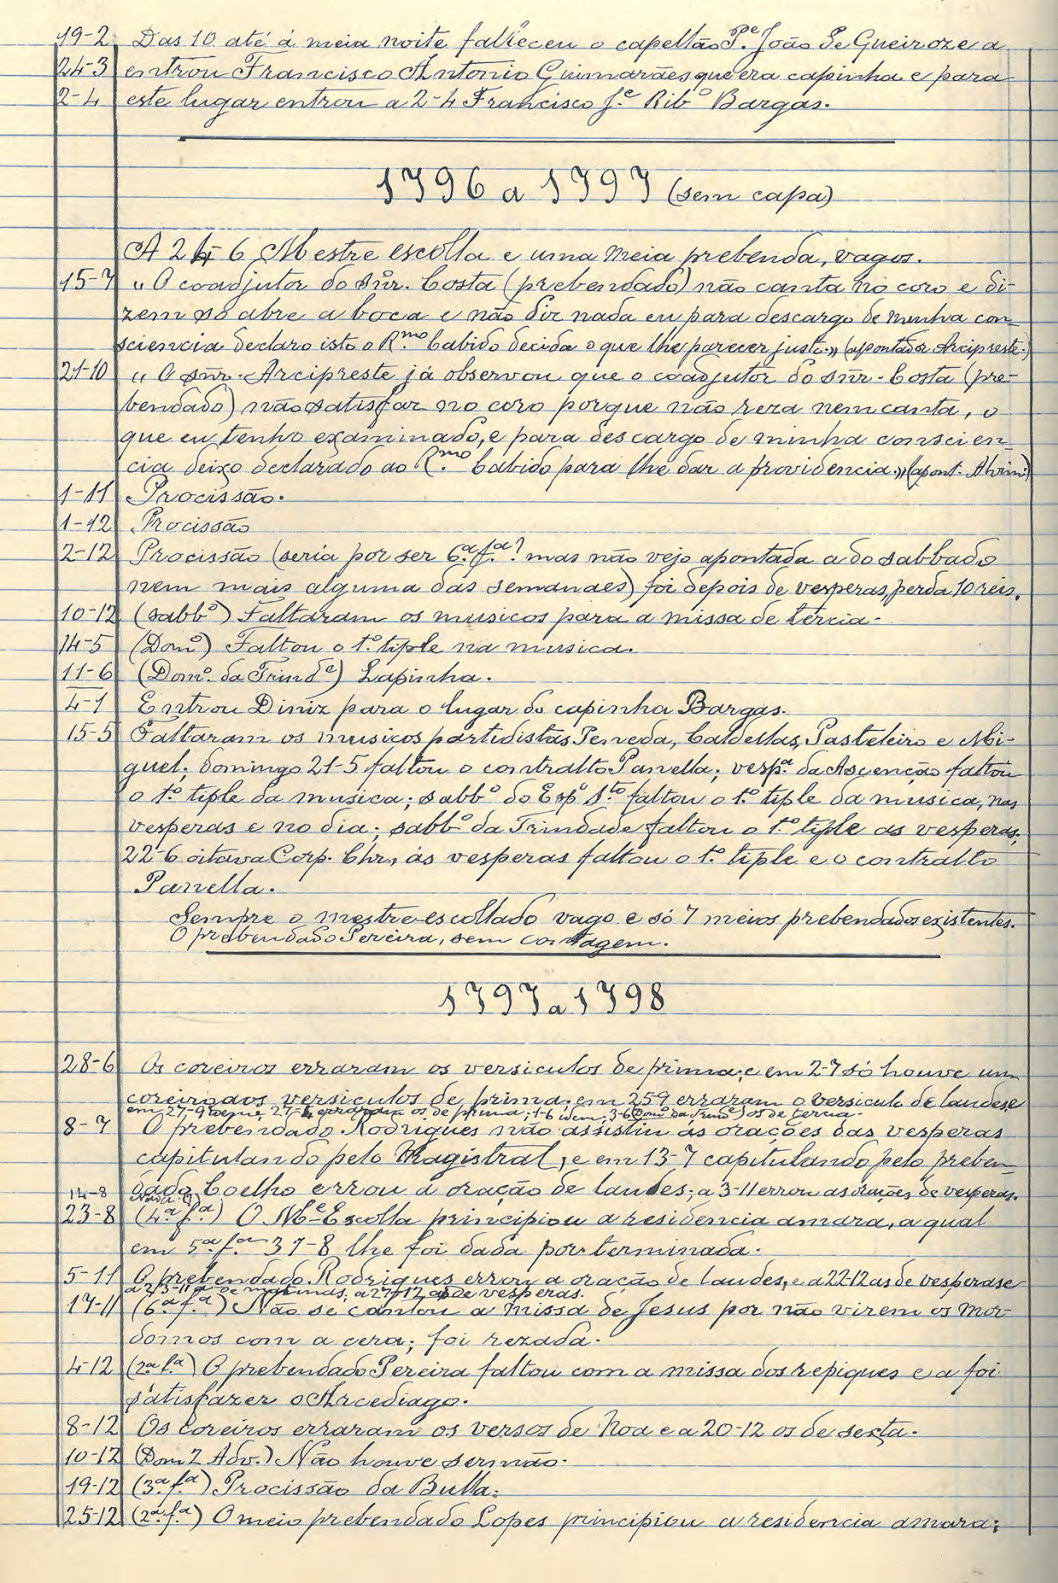 19-2 Das 10 até á meia noite falleceu o capellão P.e João de Gueiroz e a
24-3 entrou Francisco Antonio Guimarães que era capinha e para
2-4 este lugar entrou a 2-4 Francisco J.e Rib.o Bargas.
1796 a 1797 (sem capa)
A 24-6 Mestre escolla e uma meia prebenda, vagos.
15-7 "O coadjutor do snr. Costa (prebendado) não canta no coro e di-
zem só abre a boca e não diz nada eu para descargo de minha con-
sciencia declaro isto o R.mo Cabido decida o que lhe parecer justo." (apontador Arcipreste.)
21-10 "O snr. Arcipreste já observou que o coadjutor do snr. Costa (pre-
bendado) não satisfaz no coro porque não reza nem canta, o
que eu tenho examinado, e para descargo de minha conscien-
cia deixo declarado ao R.mo Cabido para lhe dar a providencia." (apont. Alvim)
1-11 Procissão.
1-12 Procissão
2-12 Procissão (seria por ser 6.a f.a? mas não vejo apontada a do sabbado
nem mais alguma das semanaes) foi depois de vesperas, perda 10 reis.
10-12 (sabb.o) Faltaram os musicos para a missa de tercia.
14-5 (Dom.o) Faltou o 1.o tiple na musica.
11-6 (Dom.o da Trind.e) Lapinha.
4-1 Entrou Diniz para o lugar do capinha Bargas.
15-5 Faltaram os musicos partidistas Peneda, Caldellas, Pasteleiro e Mi-
guel; domingo 21-5 faltou o contralto Panella; vesp.a da Ascenção faltou
o 1.o tiple da musica; sabb.o do Esp.o S.to faltou o 1.o tiple da musica, nas
vesperas e no dia; sabb.o da Trindade faltou o 1.o tiple as vesperas;
22-6 oitava Corp. Chr., ás vesperas faltou o 1.o tiple e o contralto
Panella.
Sempre o mestre-escollado vago e só 7 meios prebendados existentes.
O prebendado Pereira, sem contagem.
1797 a 1798
28-6 Os coreiros erraram os versiculos de prima; e em 2-7 só houve um
coreiro aos versiculos de prima; em 25-9 erraram o versiculo de laudes e
em 27-9 27-4 erraram os de prima; 1-6 idem; 3-6 (Dom.o da Trind.e) os de tercia.
8-7 O prebendado Rodrigues não assistiu ás orações das vesperas
capitulando pelo Magistral, e em 13-7 capitulando pelo preben-
14-8 dado Coelho errou a oração de laudes; a 3-11 errou as orações de vesperas.
23-8 (4.a f.a) O M.e Escolla principiou a residencia amara, a qual
em 5.a f.a 31-8 lhe foi dada por terminada.
5-11 O prebendado Rodrigues errou a oração de laudes, e a 22-12 as de vesperas e
a 23-11 a de matinas; a 27-12 as de vesperas.
17-11 (6.a f.a) Não se cantou a missa de Jesus por não virem os mor-
domos com a cera; foi rezada.
4-12 (2.a f.a) O prebendado Pereira faltou com a missa dos repiques e a foi
satisfazer o Arcediago.
8-12 Os coreiros erraram os versos de Noa e a 20-12 os de sexta.
10-12 (Dom 2 Adv.) Não houve sermão.
19-12 (3.a f.a) Procissão da Bulla.
25-12 (2.a f.a) O meio prebendado Lopes principiou a residencia amara;